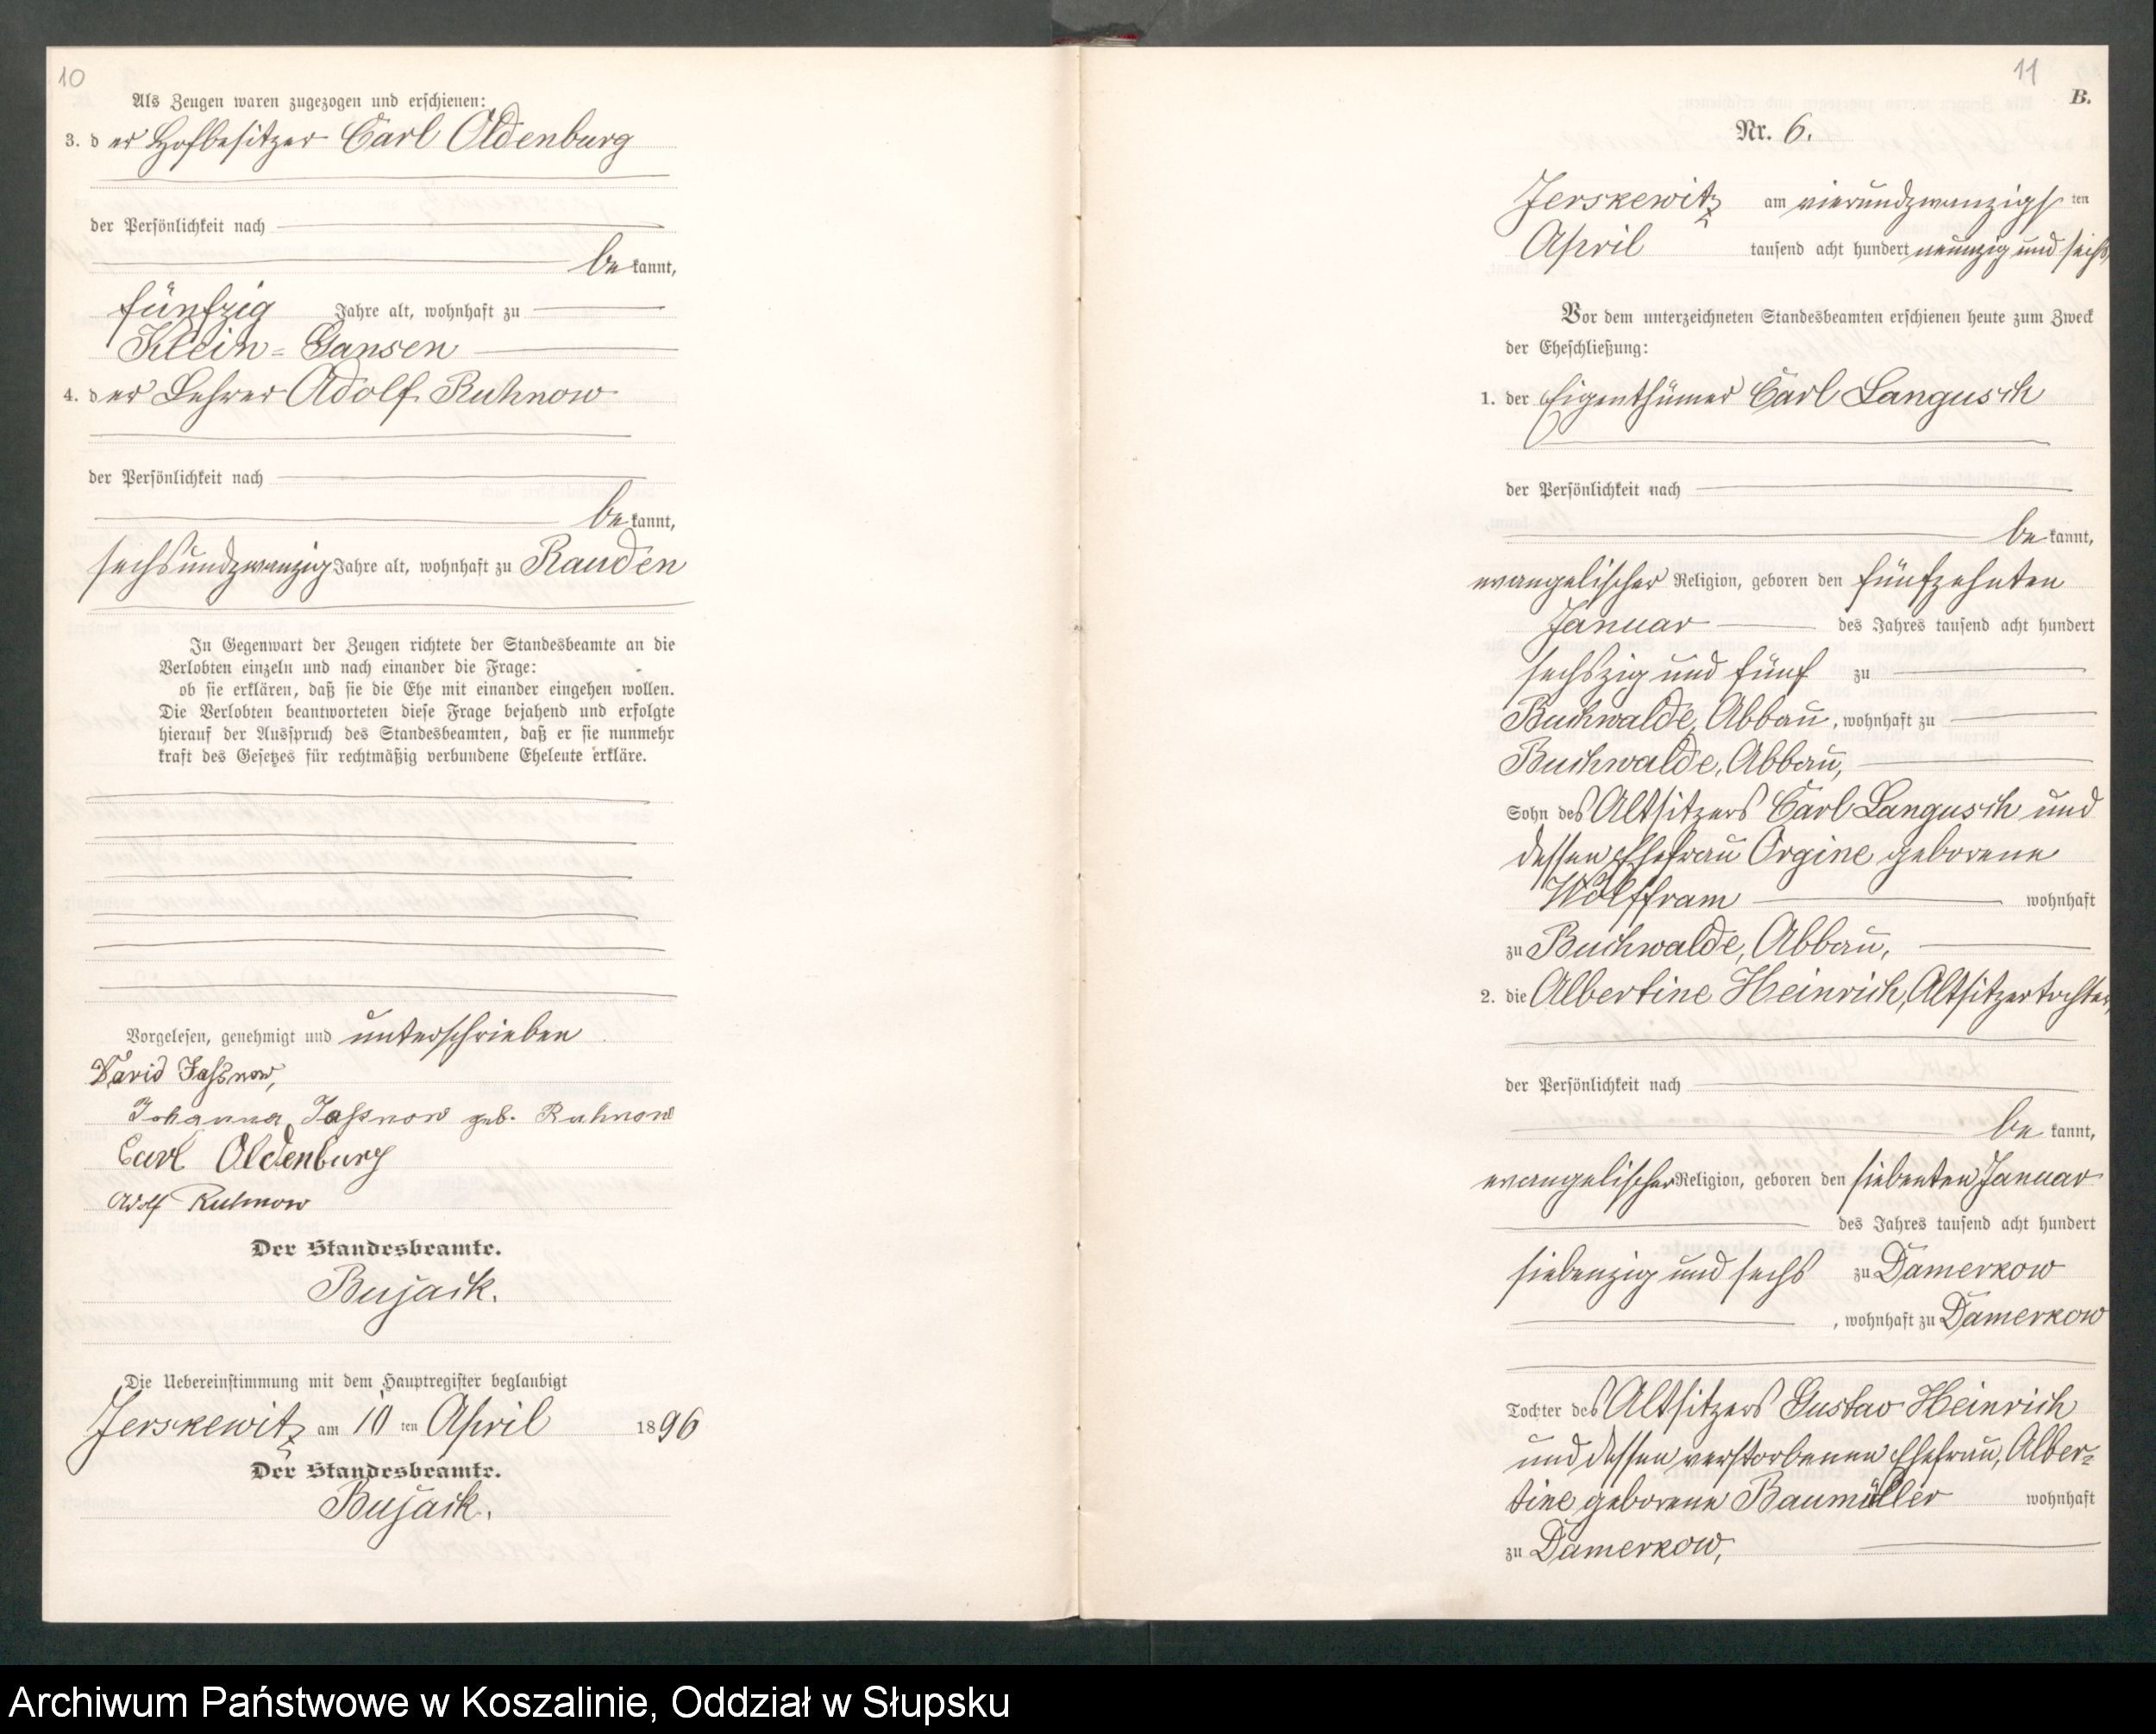 10
Als Zeugen waren zugezogen und erschienen:
3. der Hofbesitzer Carl Oldenburg
der Persönlichkeit nach
bekannt,
fünfzig Jahre alt, wohnhaft zu
Klein-Gansen
4. der Lehrer Adolf Ruhnow
der Persönlichkeit nach
bekannt,
sechsundzwanzig Jahre alt, wohnhaft zu Rauden
In Gegenwart der Zeugen richtete der Standesbeamte an die
Verlobten einzeln und nach einander die Frage:
ob sie erklären, daß sie die Ehe mit einander eingehen wollen.
Die Verlobten beantworteten diese Frage bejahend und erfolgte
hierauf der Ausspruch des Standesbeamten, daß er sie nunmehr
kraft des Gesetzes für rechtmäßig verbundene Eheleute erkläre.
Vorgelesen, genehmigt und unterschrieben
David Jaßnow,
Johanna Jaßnow geb. Ruhnow
Carl Oldenburg
Adolf Ruhnow
Der Standesbeamte.
Bujack.
Die Uebereinstimmung mit dem Hauptregister beglaubigt
Jerskewitz am 10 ten April 1896
Der Standesbeamte.
Bujack.
11
B.
Nr. 6.
Jerskewitz am vierundzwanzigsten
April tausend acht hundert neunzig und sechs
Vor dem unterzeichneten Standesbeamten erschienen heute zum Zweck
der Eheschließung:
1. der Eigenthümer Carl Langusch
der Persönlichkeit nach
bekannt,
evangelischer Religion, geboren den fünfzehnten
Januar des Jahres tausend acht hundert
sechszig und fünf zu
Buchwalde, Abbau, wohnhaft zu
Buchwalde, Abbau,
Sohn des Altsitzers Carl Langusch und
dessen Ehefrau Orgine geborene
Wölffram wohnhaft
zu Buchwalde, Abbau,
2. die Albertine Heinrich, Altsitzertochter,
der Persönlichkeit nach
bekannt,
evangelischer Religion, geboren den siebenten Januar
des Jahres tausend acht hundert
siebenzig und sechs zu Damerkow
, wohnhaft zu Damerkow
Tochter des Altsitzers Gustav Heinrich
und dessen verstorbenen Ehefrau, Alber-
tine geborene Baumüller wohnhaft
zu Damerkow,
Archiwum Państwowe w Koszalinie, Oddział w Słupsku